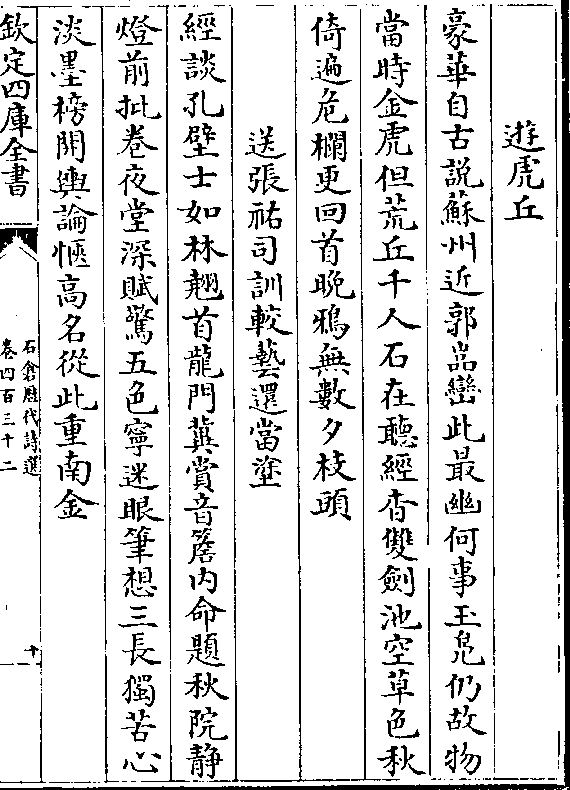 遊虎丘
豪華自古說蘇州近郭嵓巒此最幽何事玉鳧仍故物
當時金虎但荒丘千人石在聽經杳雙劍池空草色秋
倚遍危欄更回首晚鴉無數夕枝頭
送張祐司訓較藝還當塗
經談孔壁士如林翹首龍門冀賞音簷内命題秋院靜
燈前批卷夜堂深賦驚五色寧迷眼筆想三長獨苦心
淡墨榜開輿論愜高名從此重南金
欽定四庫全書
石倉歷代詩選
卷四百三十二
十